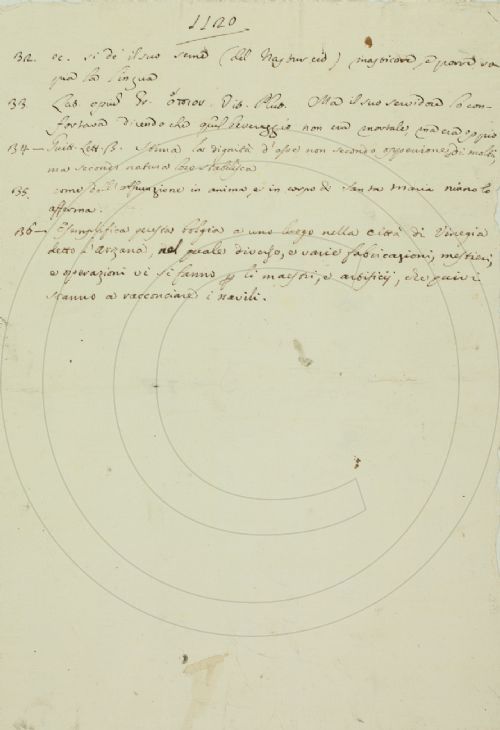 1120
132. oc. si dè il suo seme (del Nasturcio) masticare, e porre so
pra la lingua
133. Lat. opium Gr. ὄπιον. Vit. Plut. Ma il suo servidore lo con-
fortava dicendo che quel beveraggio non era mortale, ma era oppio
134 — Guitt. Lett. B. Stima la dignità d'esse non secondo oppenione di molti,
ma secondo natura loro stabilisca
135. come dell'Assunzione in anima, e in corpo di Santa Maria niuno lo
afferma.
136 — Esemplifica questa bolgia a uno luogo nella città di Vinegia
detto l'Arzanà, nel quale diverse, e varie fabbricazioni, mestieri,
e operazioni vi si fanno p li maestri, e artificij, che quivi
stanno a racconciare i navili.